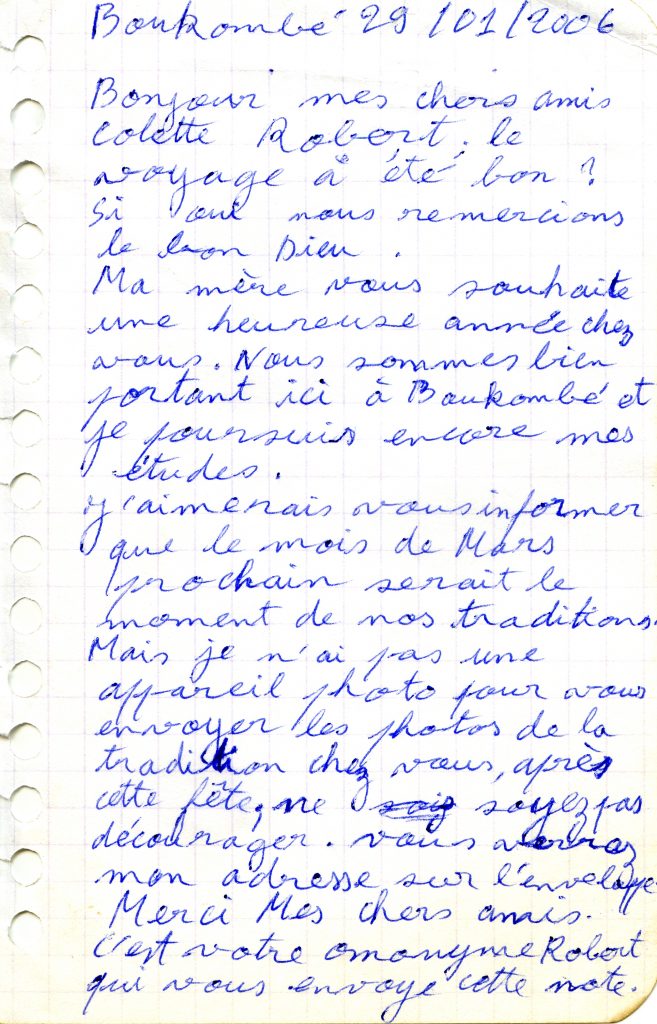 Boukombé 29/01/2006
Bonjour mes chers amis
Colette Robert. le
voyage à été bon ?
Si oui nous remercions
le bon Dieu .
Ma mère vous souhaite
une heureuse année chez
vous. Nous sommes bien
portant ici à Boukombé et
je poursuis encore mes
études.
J'aimerais vous informer
que le mois de Mars
prochain serait le
moment de nos traditions.
Mais je n'ai pas une
appareil photo pour vous
envoyer les photos de la
tradition chez vous, après
cette fête, ne soyez pas
décourager. vous verrez
mon adresse sur l'enveloppe
Merci Mes chers amis.
C'est votre omonyme Robert
qui vous envoye cette note.